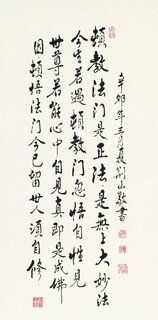 頓教法門是正法是無上大妙法
今生若遇頓教門忽悟自性見
世尊若能心中自見真即是成佛
因頓悟法門今已留世人須自修
辛卯年三月夏荆山敬書